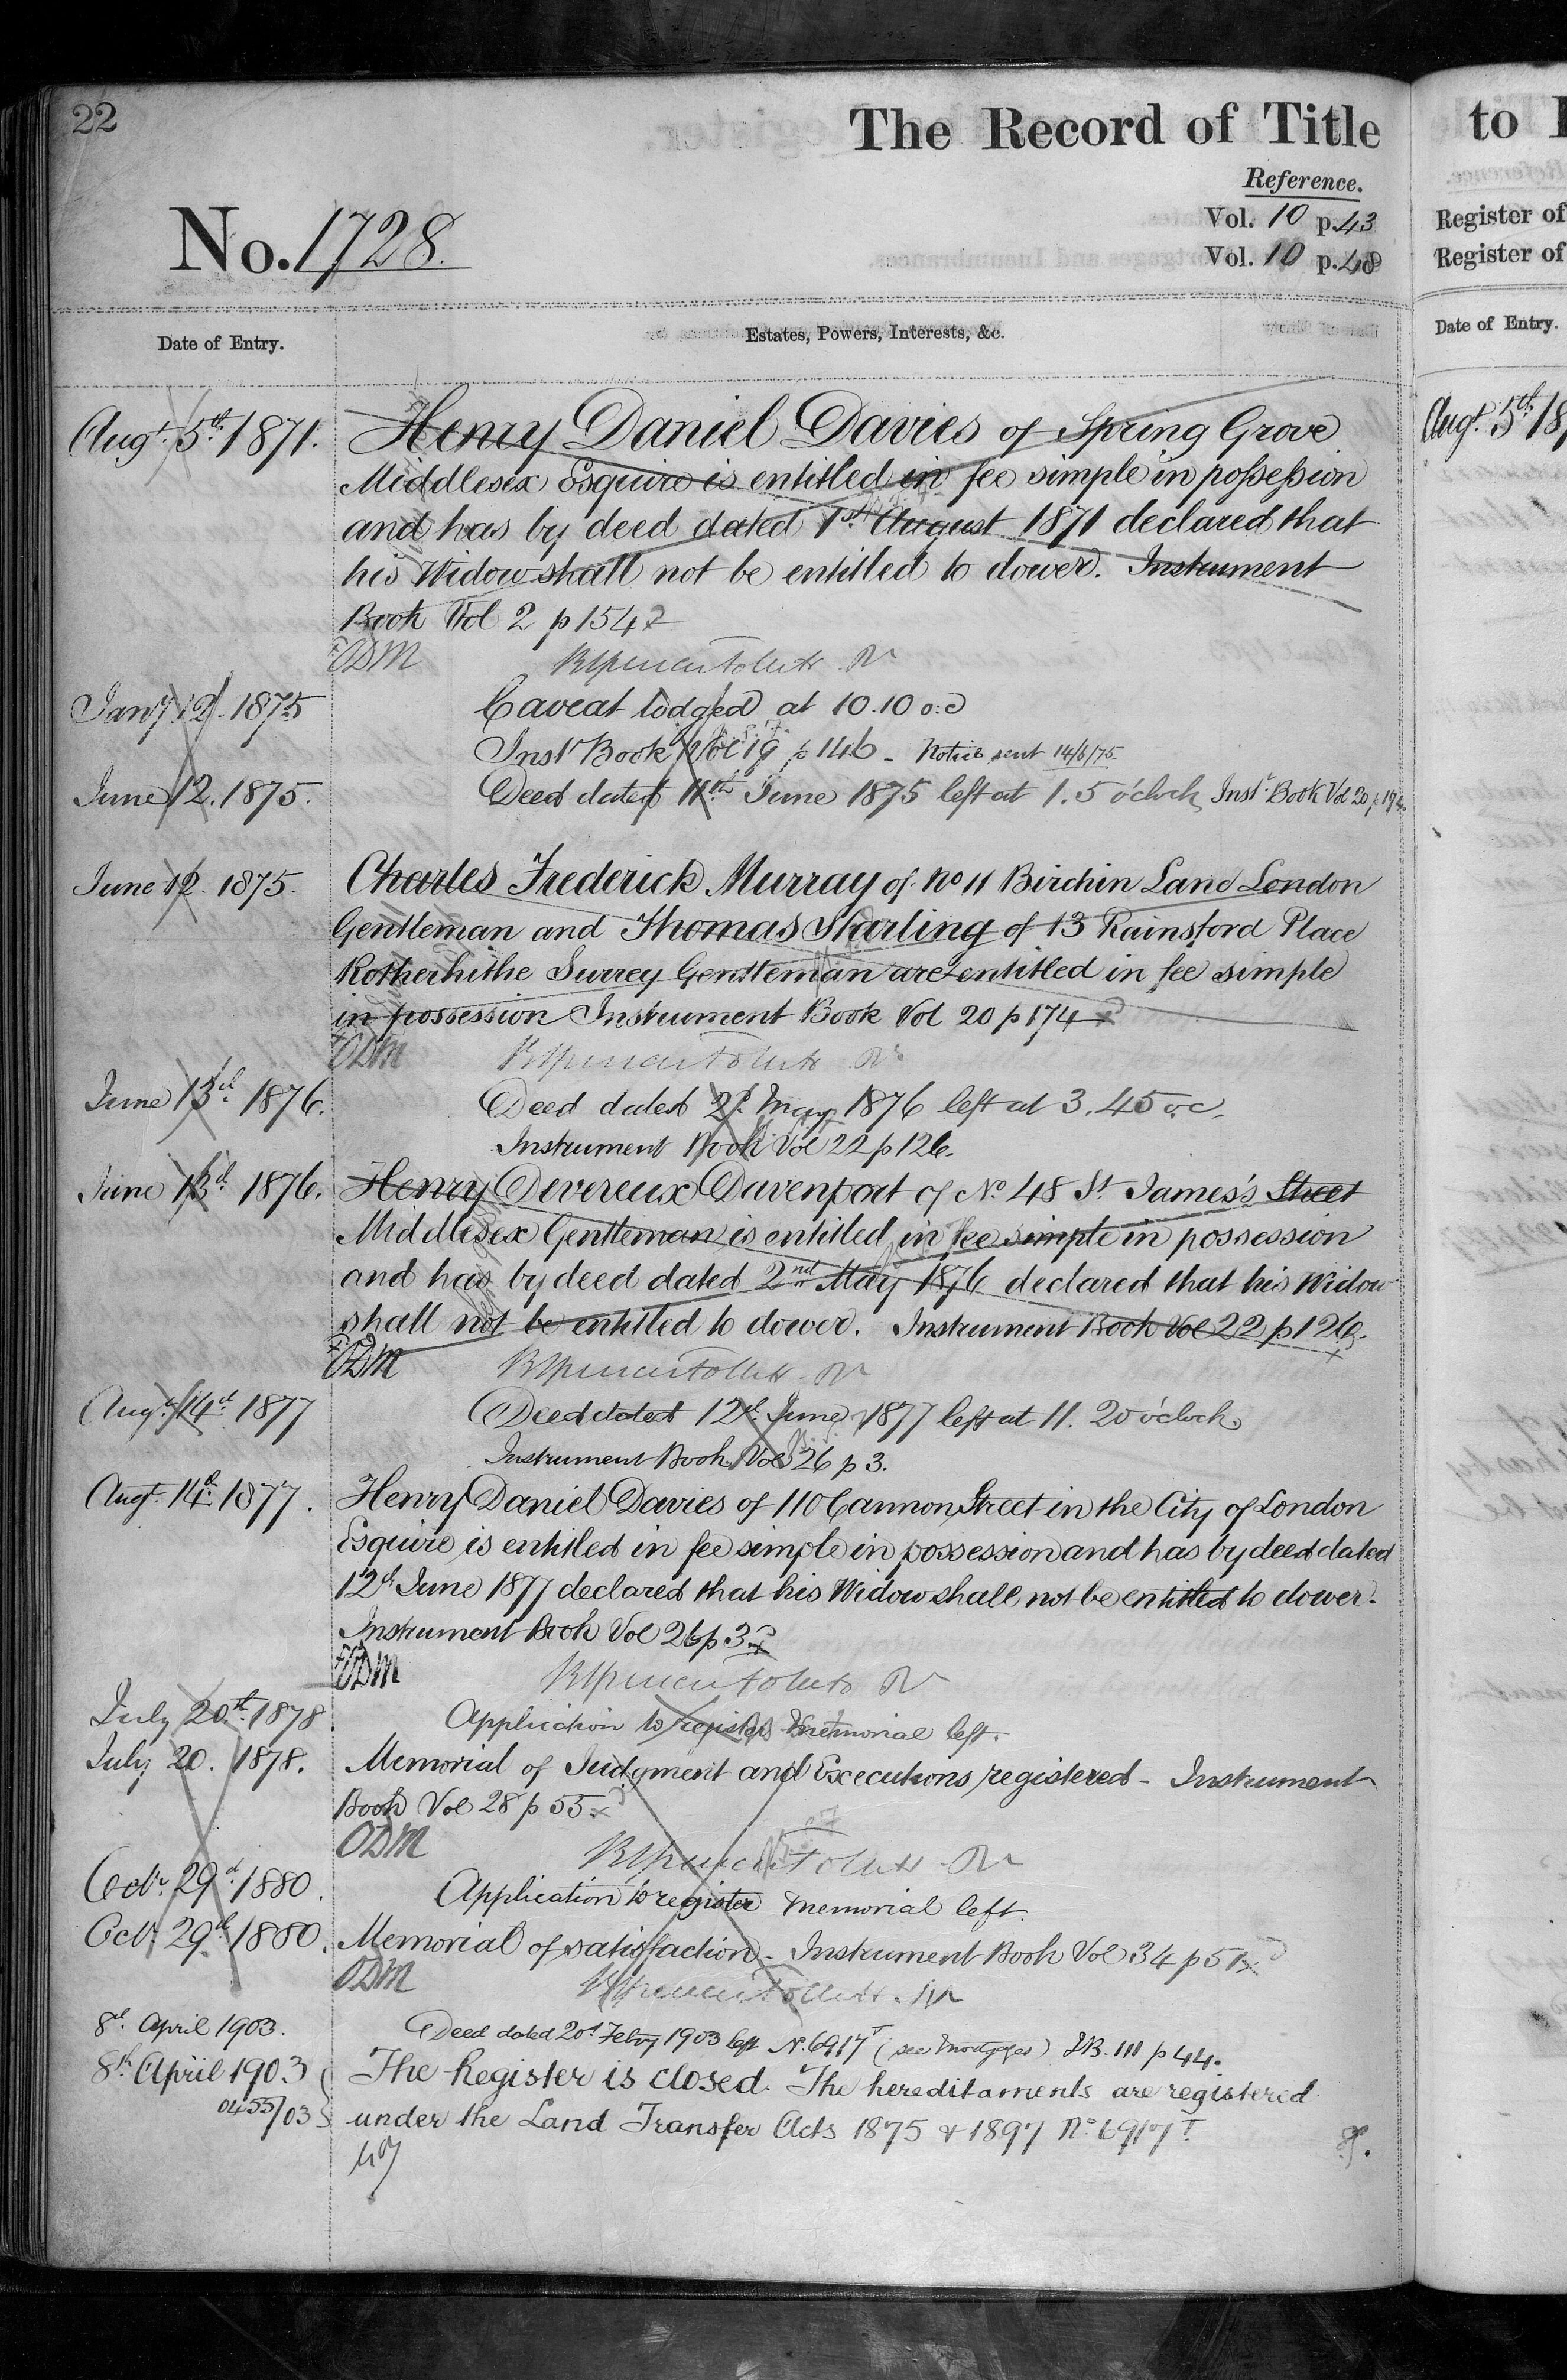 22
The Record of Title
Reference.
No. 1728.
Vol. 10 p. 43
Vol. 10 p. 48
Date of Entry.
Estates, Powers, Interests, &c.
Augt. 5th 1871. Henry Daniel Davies of Spring Grove
Middlesex Esquire is entitled in fee simple in possession
and has by deed dated 1st August 1871 declared that
his Widow shall not be entitled to dower. Instrument
Book Vol 2 p 154
ODM
Jany 12. 1875 Caveat lodged at 10.10 o:c
Instr Book Vol 19 p 146 - Notice sent 14/6/75
June 12. 1875. Deed dated 11th June 1875 left at 1.5 o'clock Instr Book Vol 20 p 174
June 12. 1875. Charles Frederick Murray of No 11 Birchin Lane London
Gentleman and Thomas Starling of 13 Rainsford Place
Rotherhithe Surrey Gentleman are entitled in fee simple
in possession Instrument Book Vol 20 p 174
ODM
June 13th 1876. Deed dated 2d May 1876 left at 3.45 o.c.
Instrument Book Vol 22 p 126.
June 13th 1876. Henry Devereux Davenport of No 48 St James's Street
Middlesex Gentleman is entitled in fee simple in possession
and has by deed dated 2nd May 1876 declared that his Widow
shall not be entitled to dower. Instrument Book Vol 22 p 126.
ODM
Augt. 14th 1877 Deed dated 12th June 1877 left at 11.20 o'clock
Instrument Book Vol 26 p 3.
Augt. 14th 1877. Henry Daniel Davies of 110 Cannon Street in the City of London
Esquire is entitled in fee simple in possession and has by deed dated
12th June 1877 declared that his Widow shall not be entitled to dower.
Instrument Book Vol 26 p 3
ODM
July 20th 1878 Application to register memorial left.
July 20. 1878. Memorial of Judgment and Executions registered - Instrument
Book Vol 28 p 55
ODM
Octr. 29th 1880. Application to register memorial left.
Octr. 29th 1880. Memorial of satisfaction - Instrument Book Vol 34 p 51
ODM
8th April 1903. Deed dated 20th Feby 1903 left No. 6917T (see Mortgages) I.B. 111 p 44.
8th April 1903 The Register is closed. The hereditaments are registered
0455/03 under the Land Transfer Acts 1875 & 1897 No. 6917T
to
Register of
Register of
Date of Entry.
Augt. 5th 18